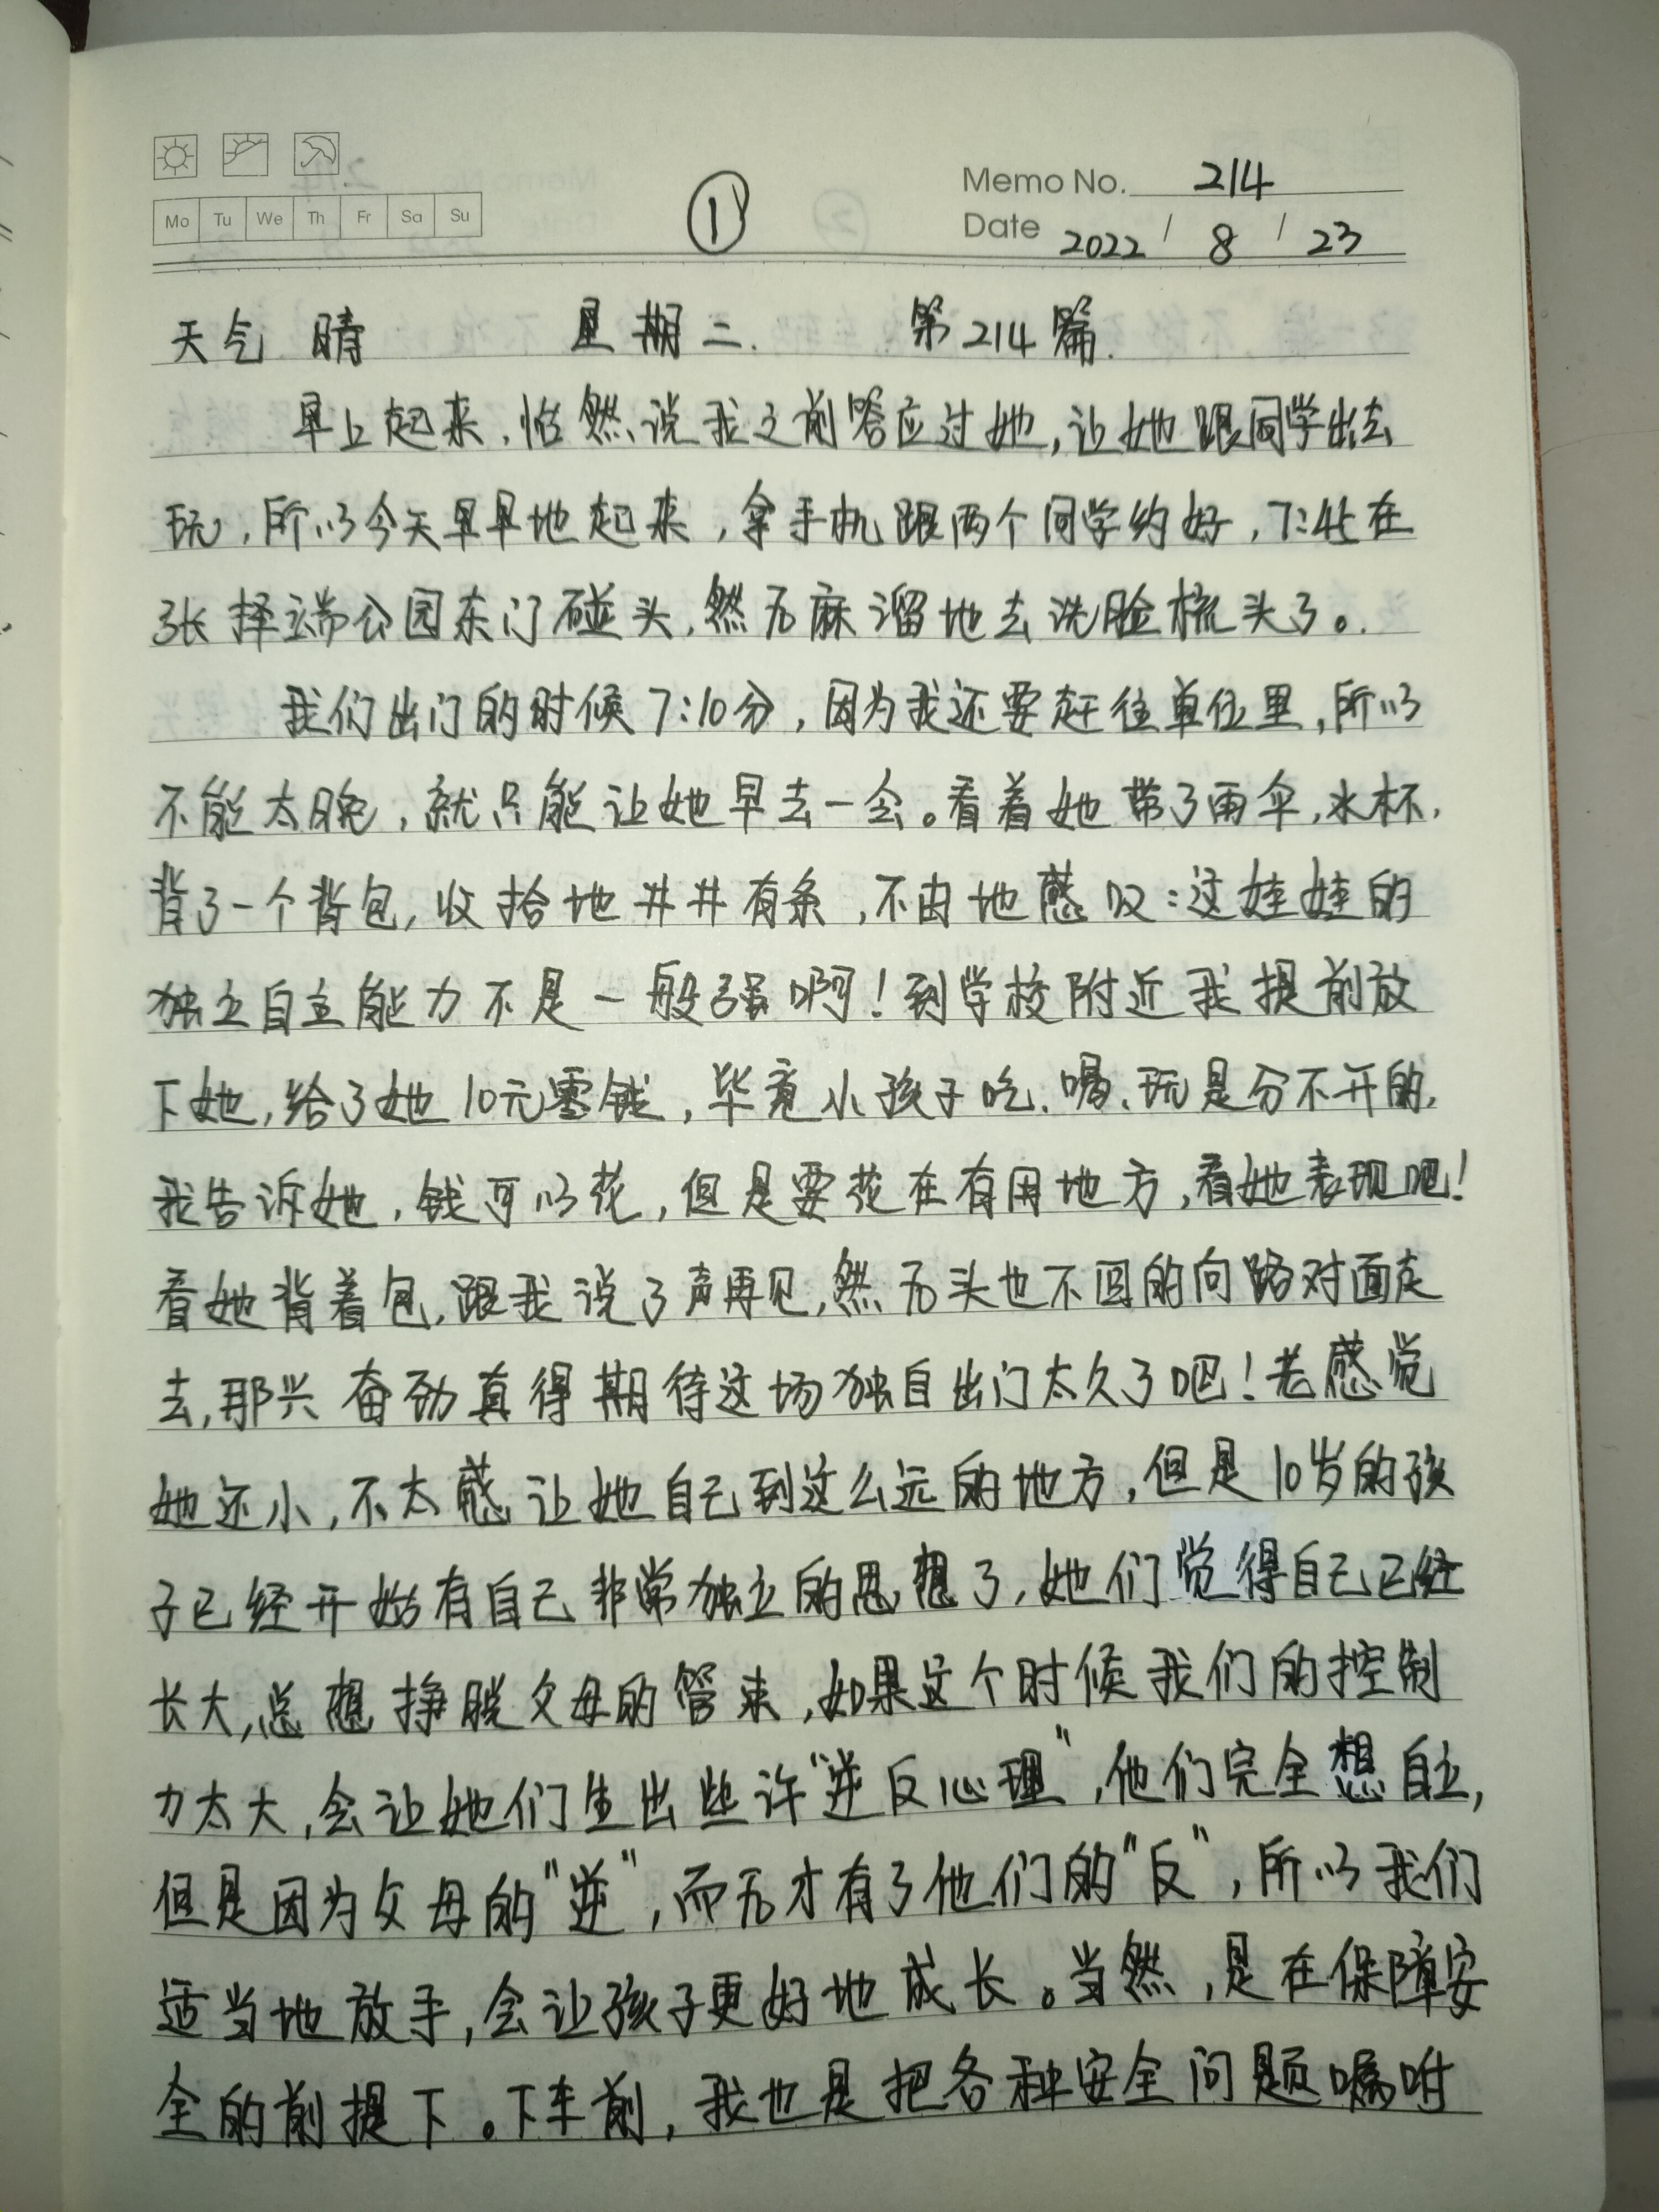 Memo No. 214
Mo Tu We Th Fr Sa Su
①
Date 2022 / 8 / 23
天气 晴 星期二. 第214篇.
早上起来,怡然说我之前答应过她,让她跟同学出去
玩,所以今天早早地起来,拿手机跟两个同学约好,7:45在
张择端公园东门碰头,然后麻溜地去洗脸梳头了。
我们出门的时候7:10分,因为我还要赶往单位里,所以
不能太晚,就只能让她早去一会。看着她带了雨伞,水杯,
背了一个背包,收拾地井井有条,不由地感叹:这娃娃的
独立自主能力不是一般强啊!到学校附近我提前放
下她,给了她10元零钱,毕竟小孩子吃、喝、玩是分不开的,
我告诉她,钱可以花,但是要花在有用地方,看她表现吧!
看她背着包,跟我说了声再见,然后头也不回的向路对面走
去,那兴奋劲真得期待这场独自出门太久了吧!老感觉
她还小,不太感让她自己到这么远的地方,但是10岁的孩
子已经开始有自己非常独立的思想了,她们觉得自己已经
长大,总想挣脱父母的管束,如果这个时候我们的控制
力太大,会让她们生出些许"逆反心理",他们完全想自立,
但是因为父母的"逆",而后才有了他们的"反",所以我们
适当地放手,会让孩子更好地成长。当然,是在保障安
全的前提下。下车前,我也是把各种安全问题嘱咐